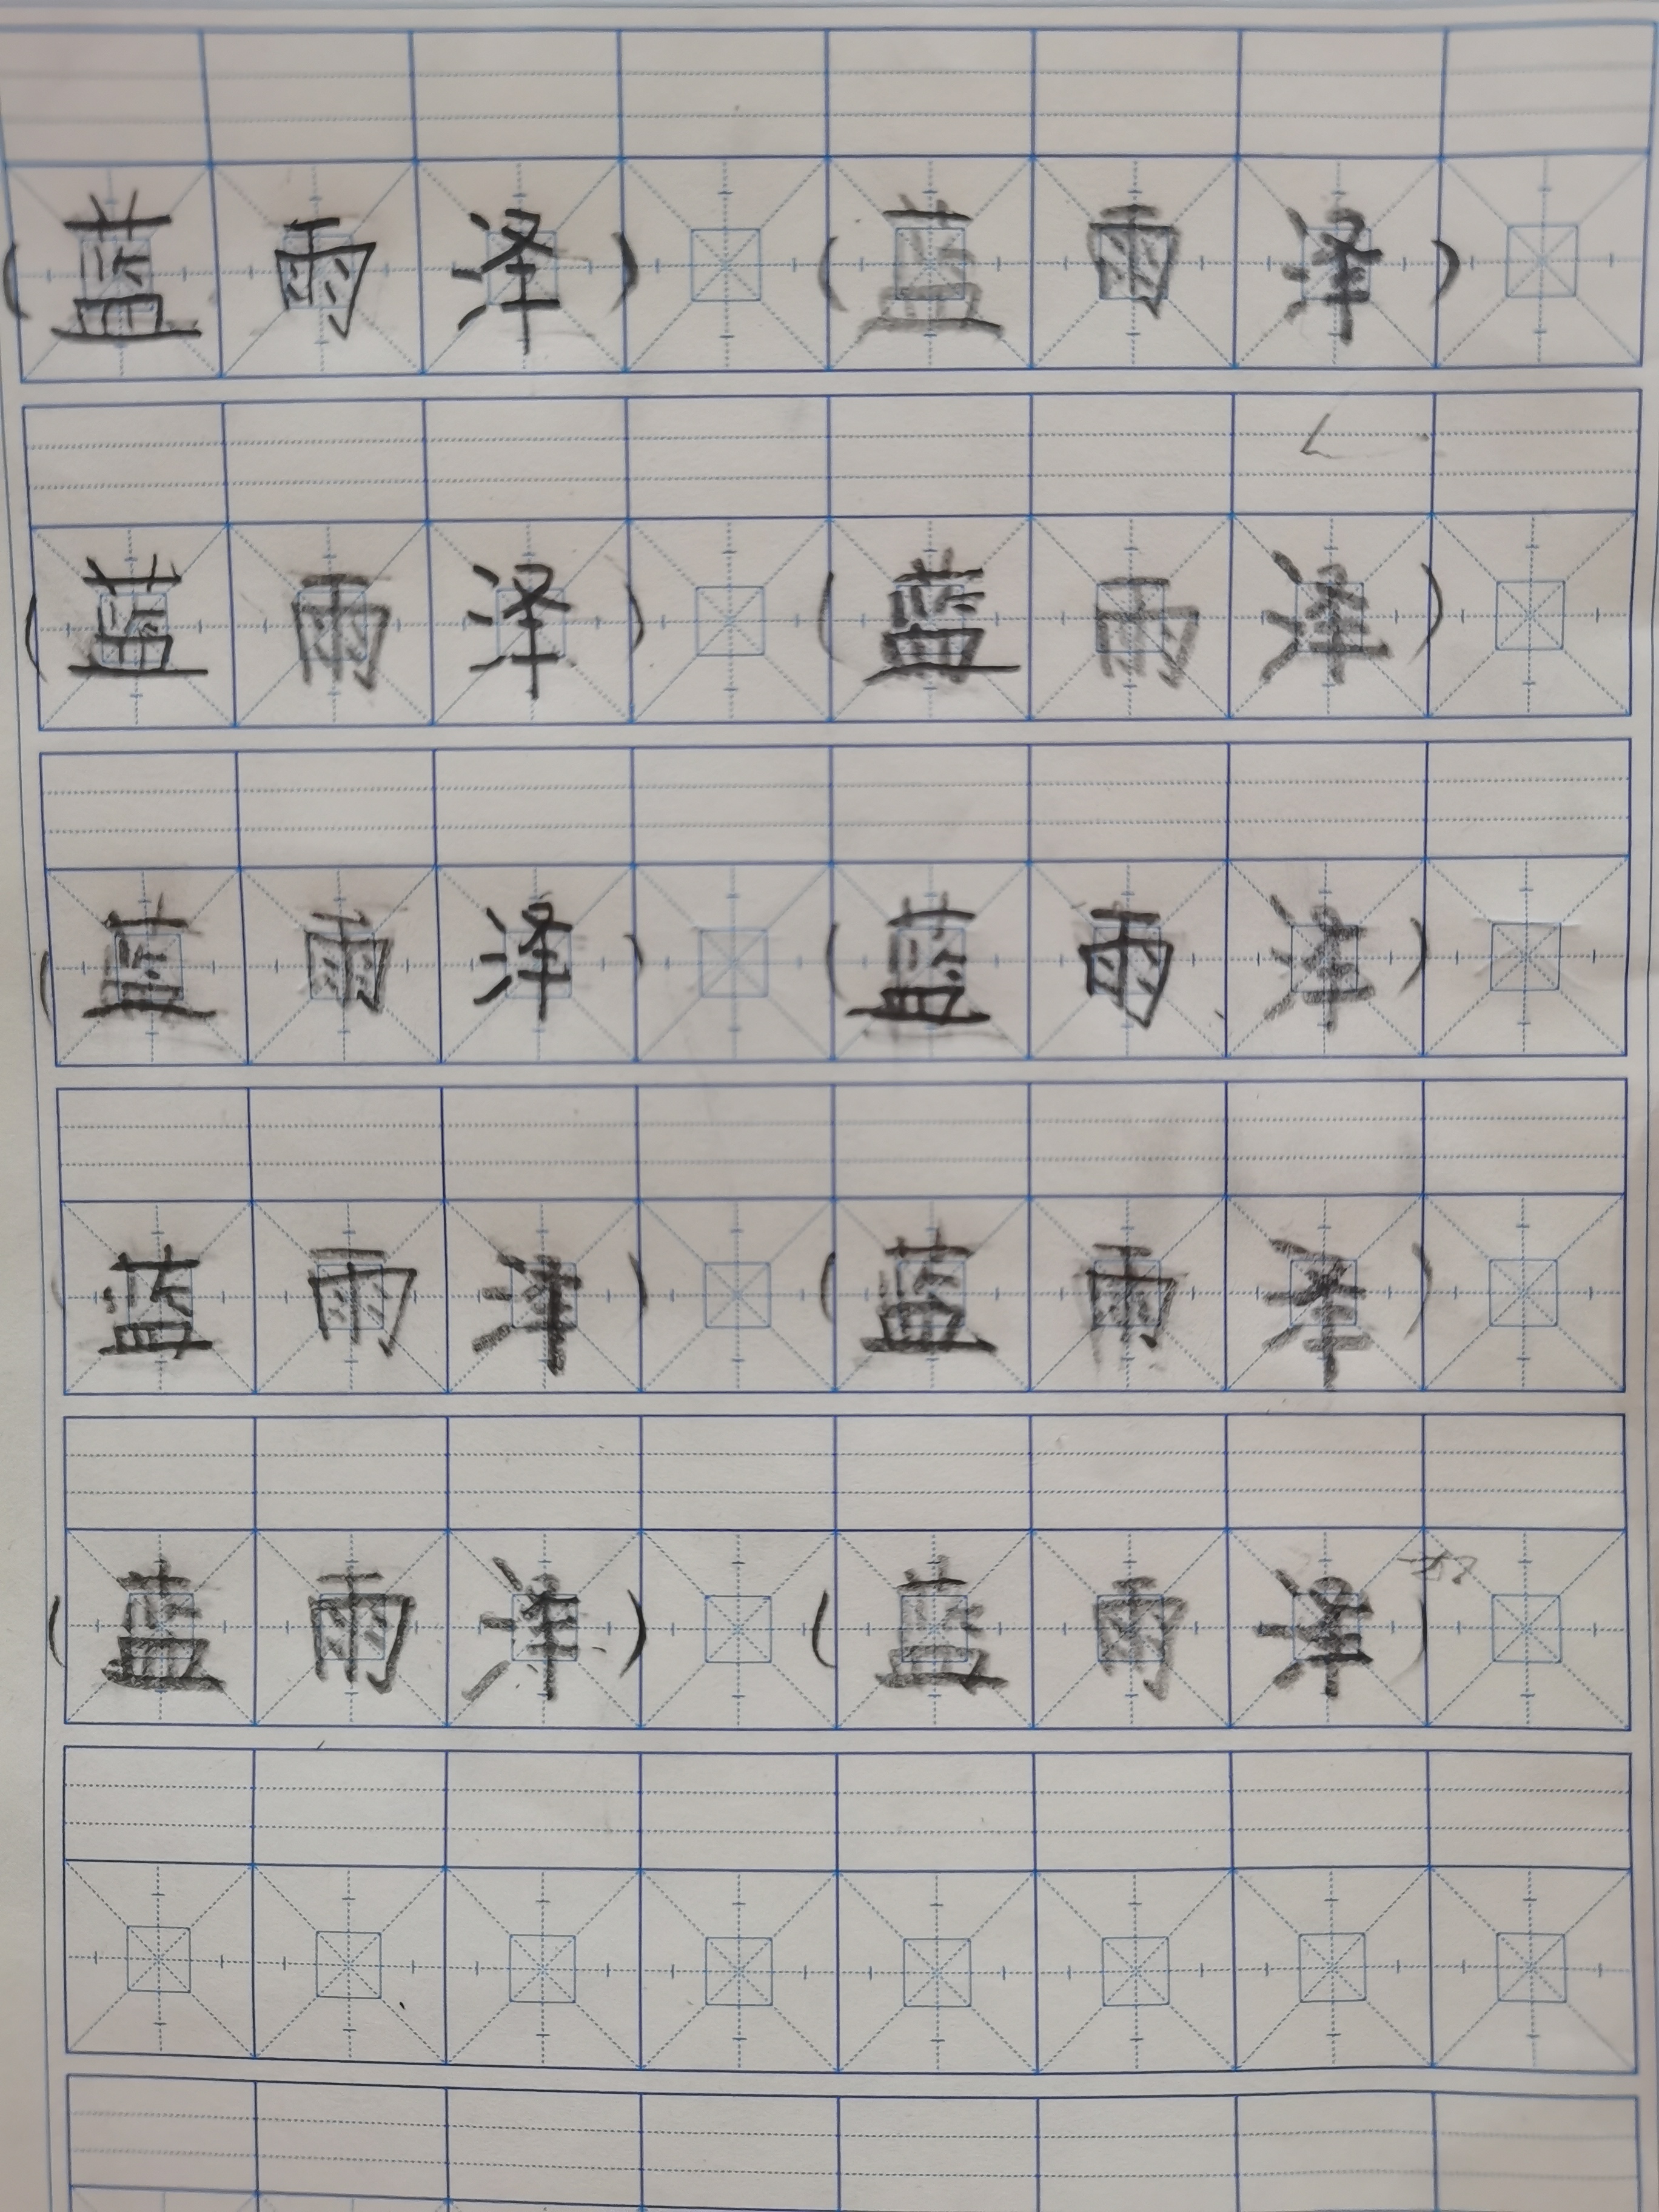 (蓝雨泽) (蓝雨泽)
(蓝雨泽) (蓝雨泽)
(蓝雨泽) (蓝雨泽)
(蓝雨泽) (蓝雨泽)
(蓝雨泽) (蓝雨泽)